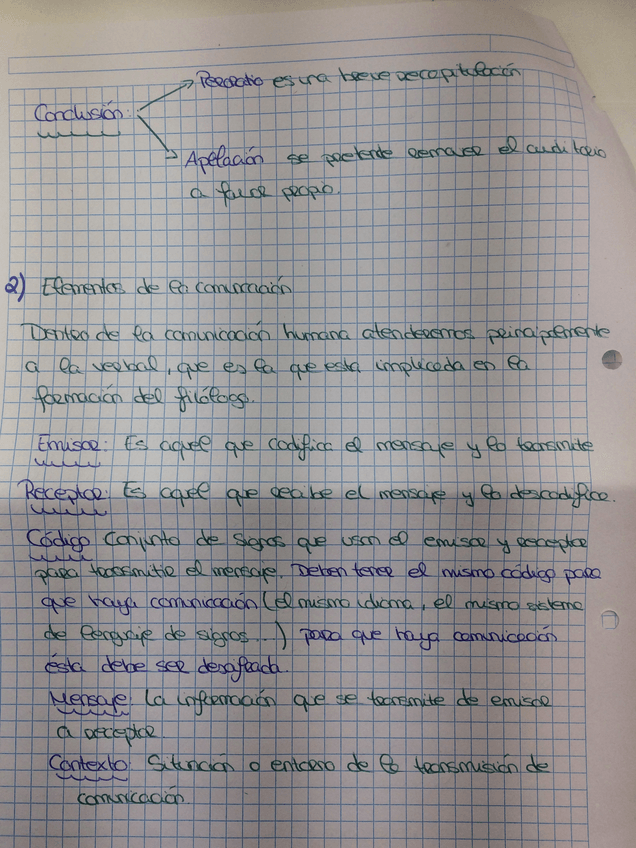 Peroratio es una breve recapitulación
Conclusión:
Apelación se pretende arrancar el auditorio
a favor propio.
2) Elementos de la comunicación
Dentro de la comunicación humana atenderemos principlemente
a la verbal, que es la que esta implicada en la
formación del filólogo.
Emisor: Es aquel que codifica el mensaje y lo transmite
Receptor: Es aquel que recibe el mensaje y lo descodifica.
Código Conjunto de signos que usan el emisor y receptor
para transmitir el mensaje. Deben tener el mismo código para
que haya comunicación (el mismo idioma, el mismo sistema
de lenguaje de signos...) para que haya comunicación
ésta debe ser descifrada.
Mensaje: La información que se transmite de emisor
a receptor
Contexto: Situación o entorno de la transmisión de
comunicación.